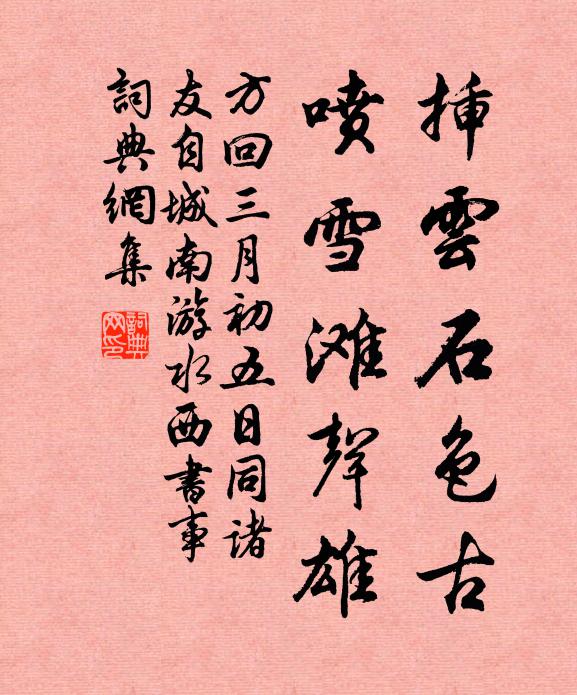 挿雲石色古
噴雪滩聲雄
方回三月初五日同諸
友自城南游水西書事
詞典網集
詞典
网印